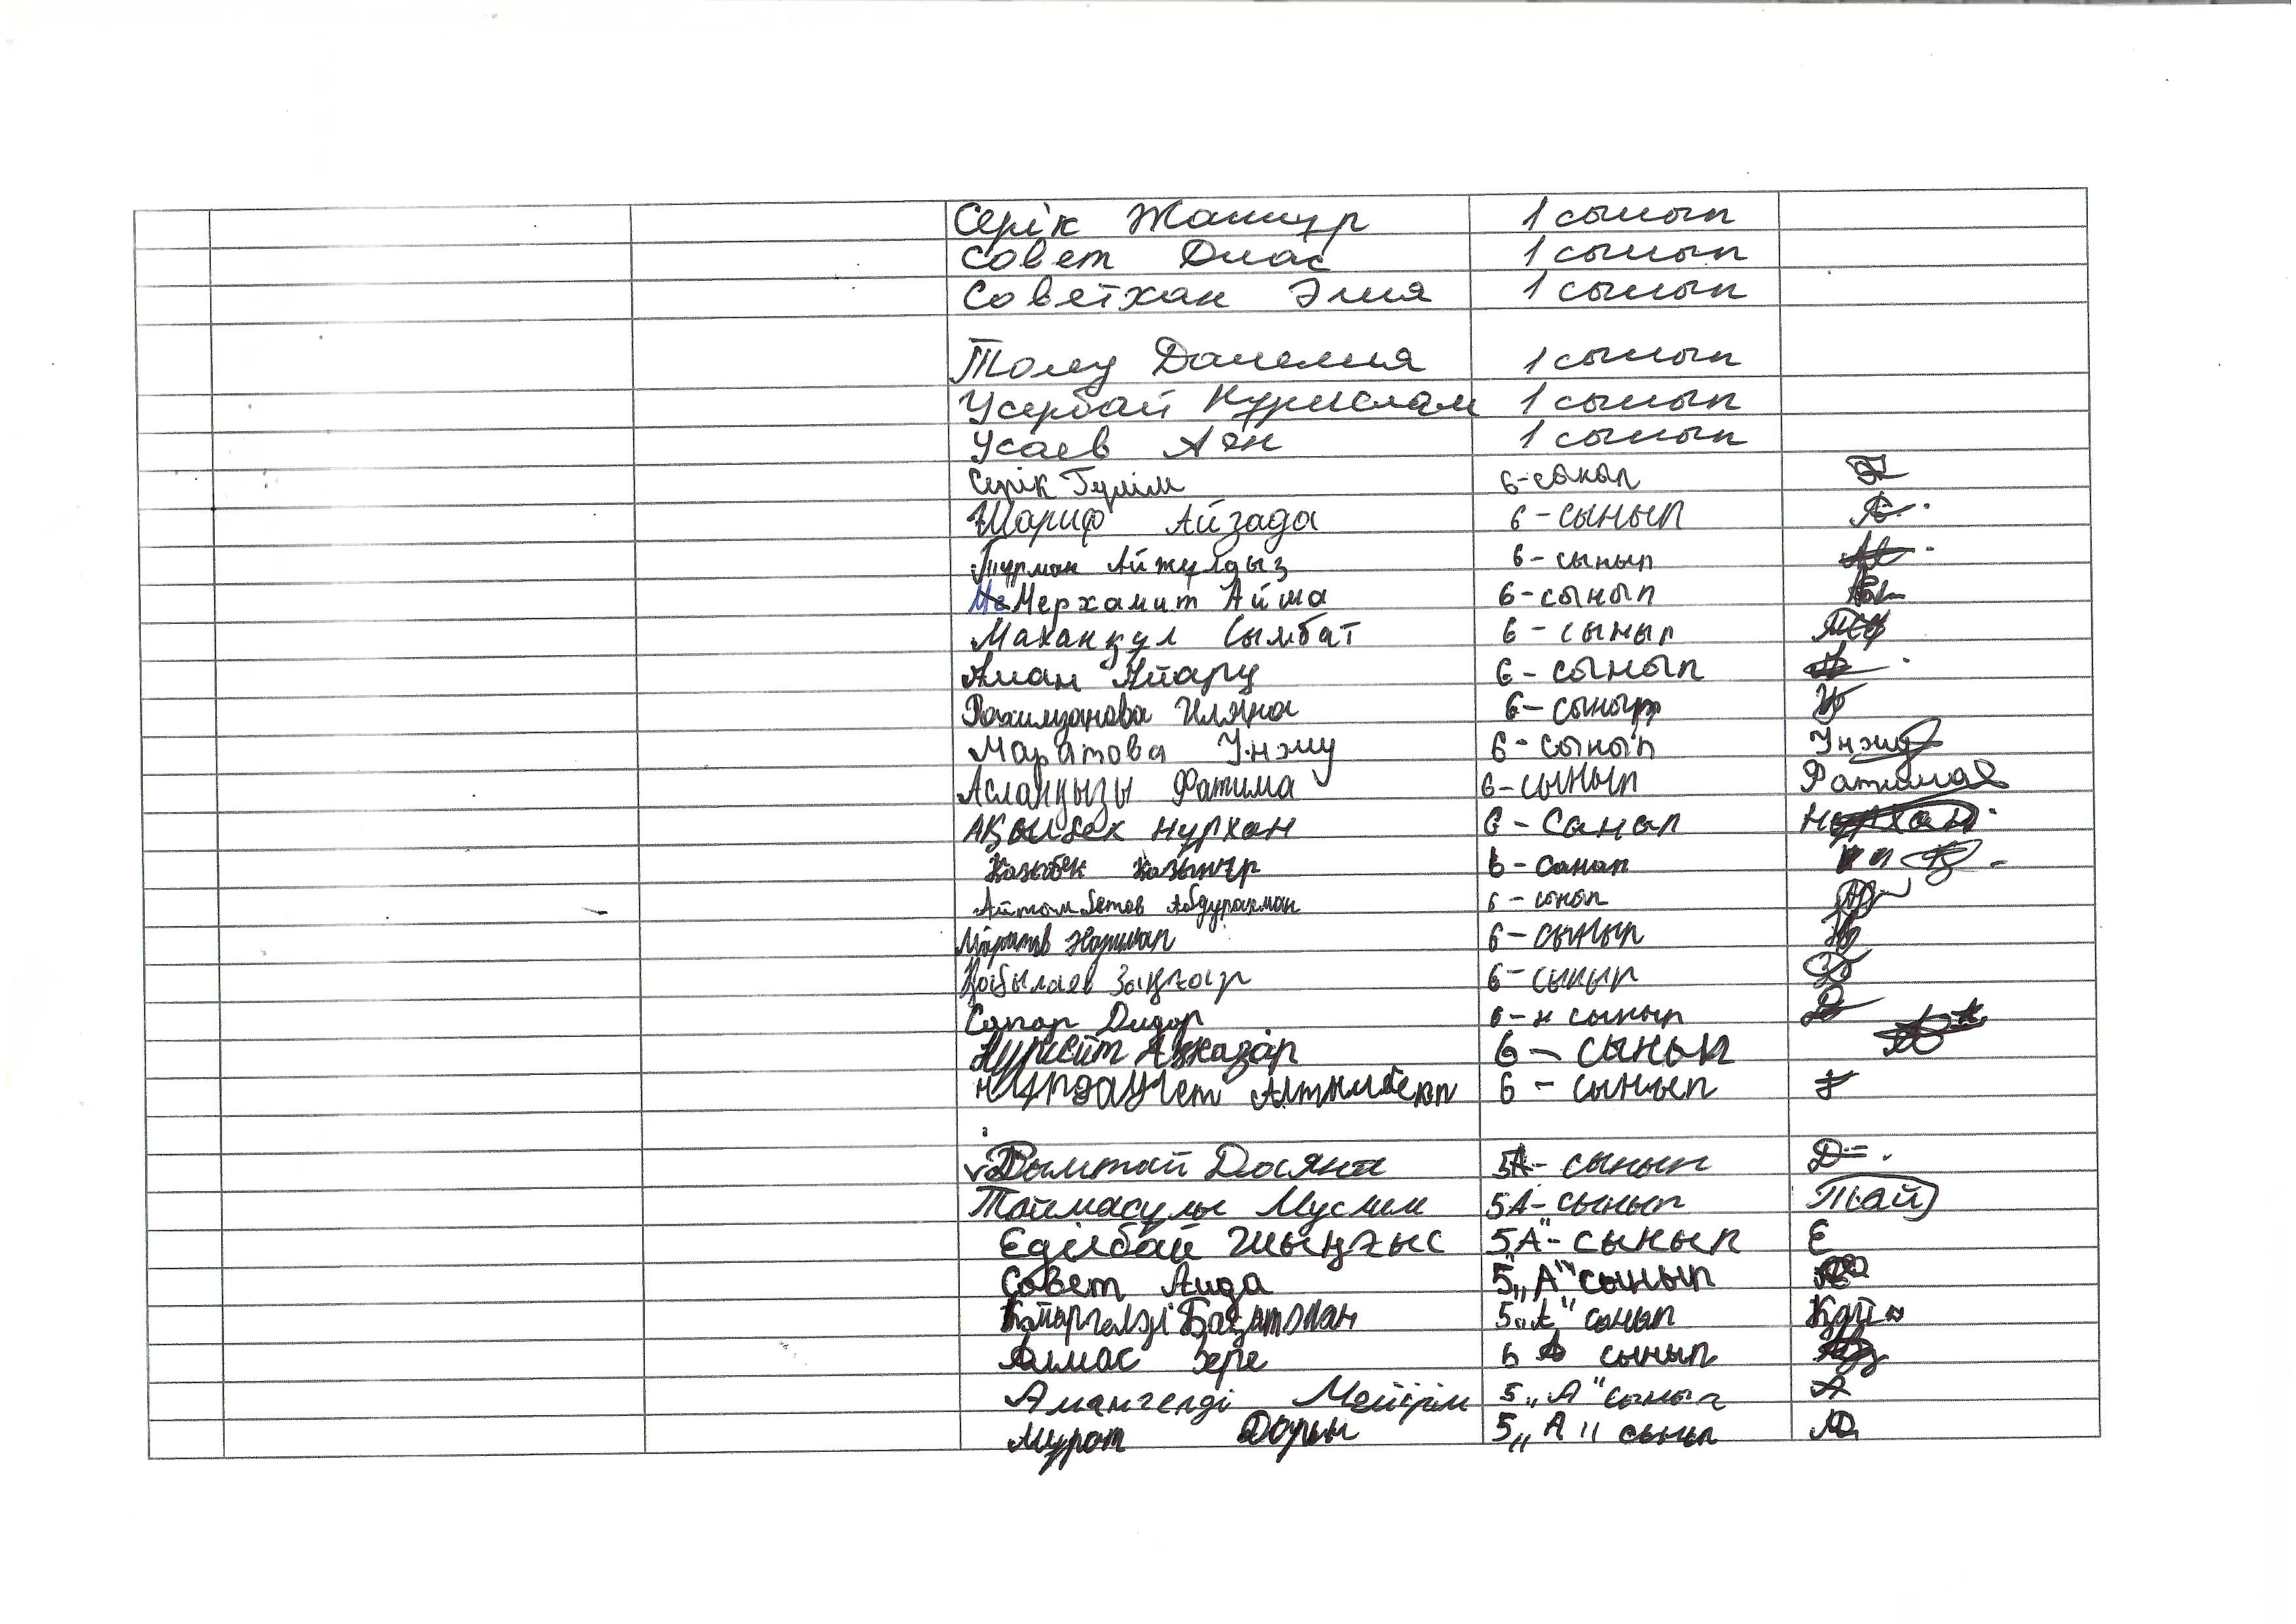 Серік Жаннұр 1 сынып
Совет Диас 1 сынып
Советхан Әлия 1 сынып
Толеу Данелия 1 сынып
Усербай Нұрислам 1 сынып
Усаев Аян 1 сынып
Серік Гүлім 6-сынып
Шариф Айзада 6-сынып
Тұрман Айжулдыз 6-сынып
Мерхамит Айша 6-сынып
Маханқұл Сымбат 6-сынып
Аман Айару 6-сынып
Рахимжанова Иляна 6-сынып
Маратова Інжу 6-сынып
Асланқызы Фатима 6-сынып Фатима
Ақылбек Нұрхан 6-Санып Нұрхан
Казыбек 6-санып
Айтомбетов Абдурахман 6-сынып
Маратов Нариман 6-сынып
Қабылаев Заңғар 6-сынып
Сапар Дидар 6-н сынып
Нурсейт Ажхазар 6-сынып
Нұрдаулет 6-сынып
Дымтай Даяна 5А-сынып Д
Таймасұлы Муслим 5А-сынып Тай
Еділбай Шыңғыс 5А"-сынып Е
Совет Аида 5„А" сынып
Бақытжан 5„А" сынып
Алмас Зере 6 А сынып
Амангелді Мейірім 5„А" сынып А
Мұрат Дарын 5„А„ сынып